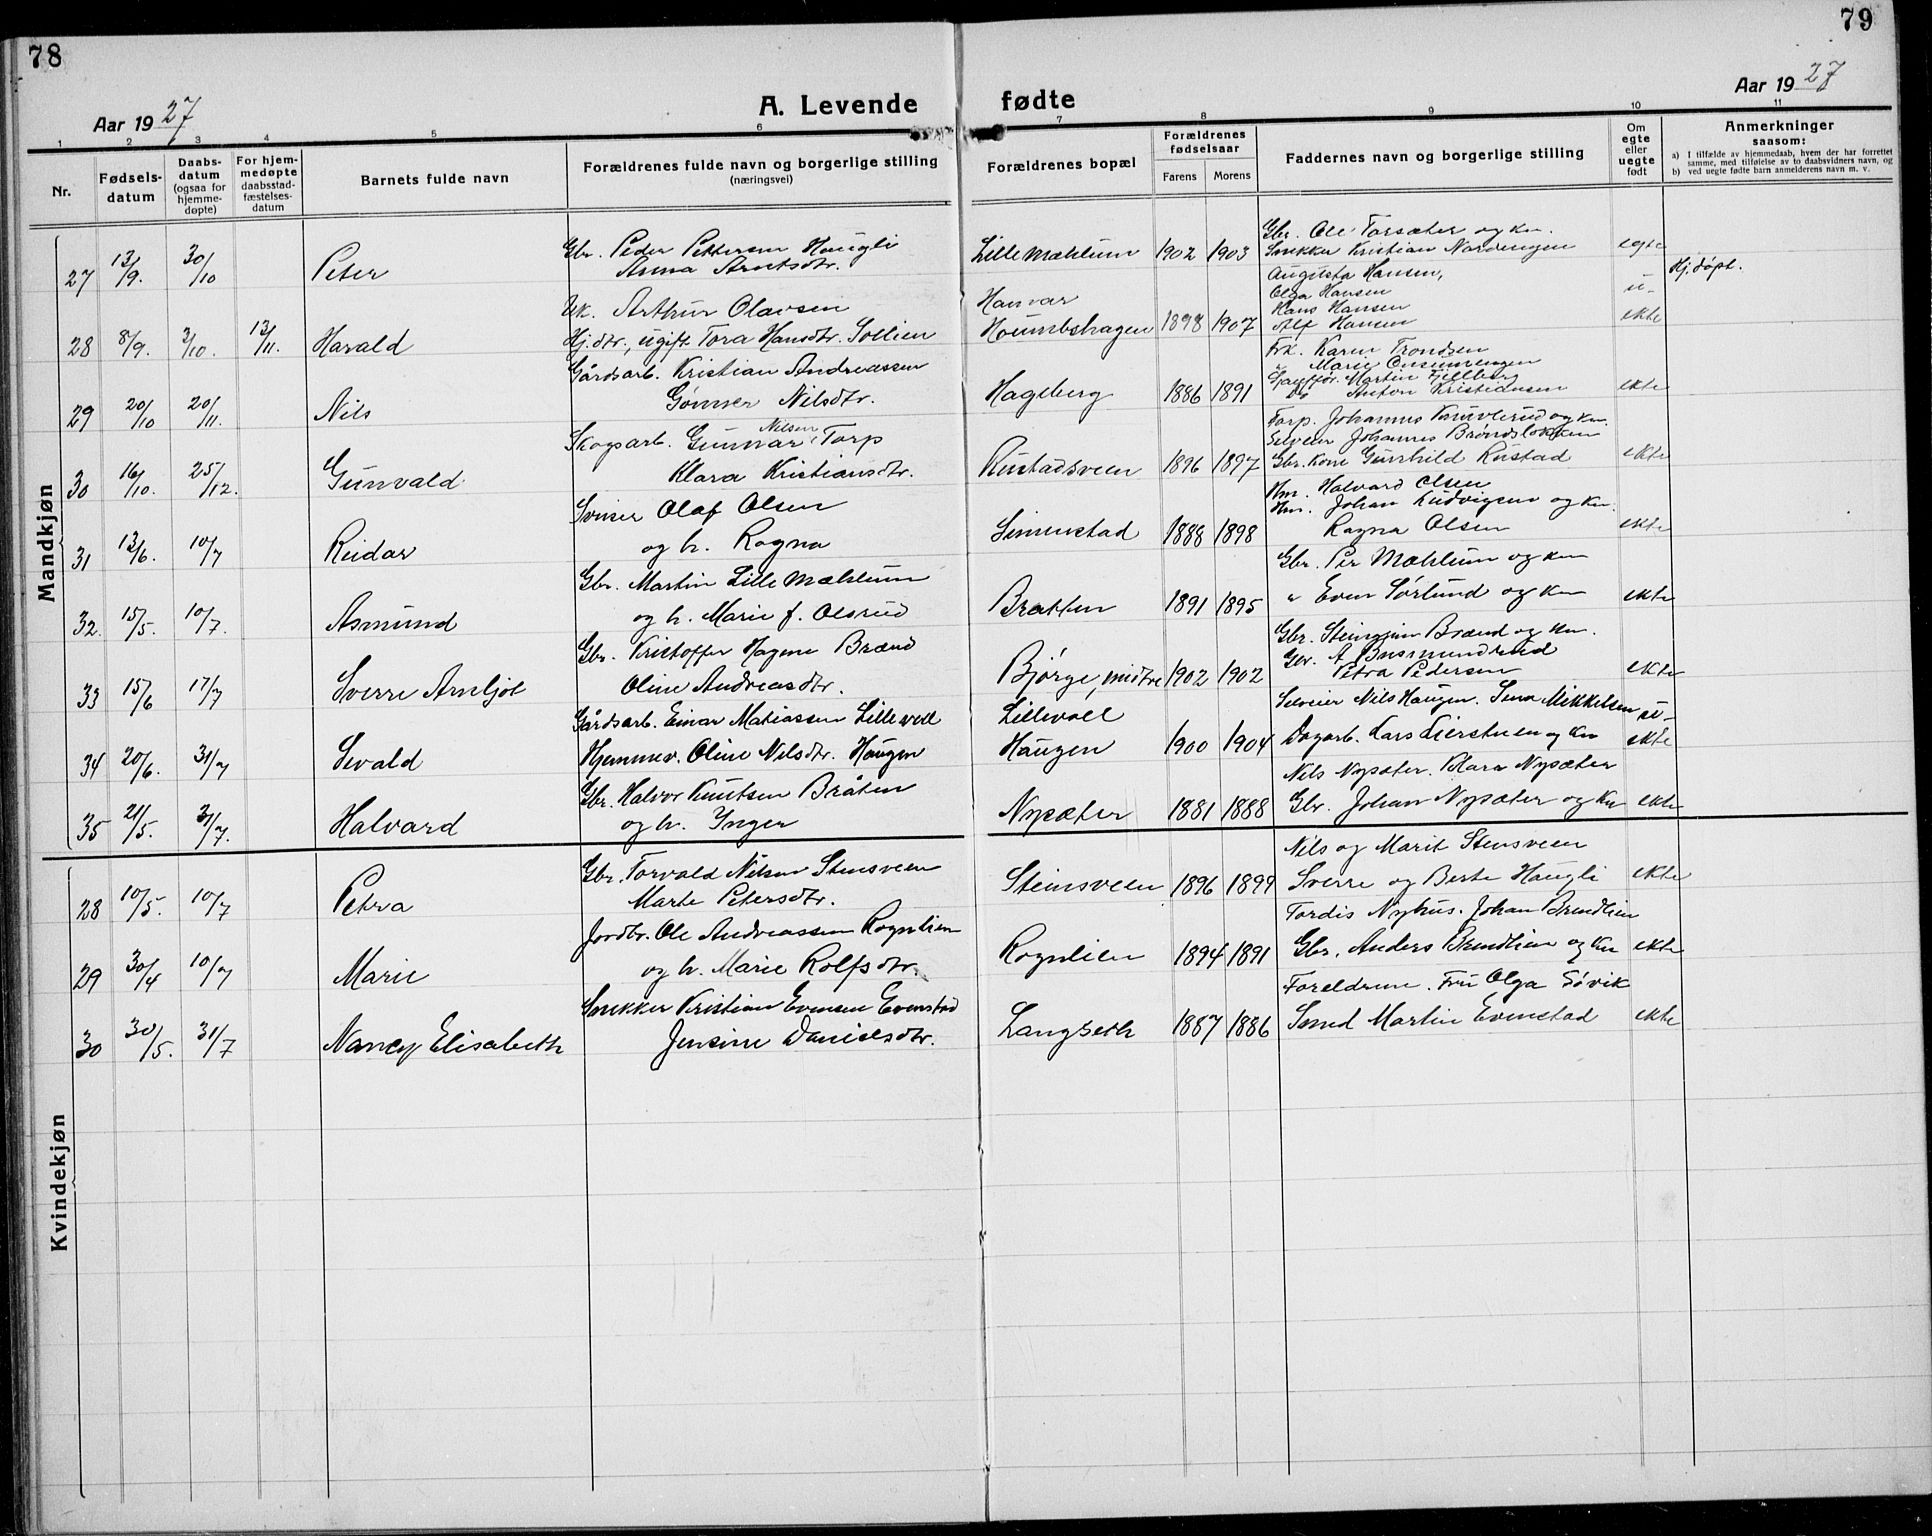 78
79
Aar 1927
A. Levende fødte
Aar 1927
1 2 3 4 5 6 7 8 9 10 11
Nr.
Fødsels-
datum
Daabs-
datum
(ogsaa for
hjemme-
døpte)
For hjem-
medøpte
daabsstad-
fæstelses-
datum
Barnets fulde navn
Forældrenes fulde navn og borgerlige stilling
(næringsvei)
Forældrenes bopæl
Forældrenes
fødselsaar
Farens Morens
Faddernes navn og borgerlige stilling
Om
egte
eller
uegte
født
Anmerkninger
saasom:
a) I tilfælde av hjemmedaab, hvem der har forrettet
samme, med tilføielse av to daabsvidners navn, og
b) ved uegte fødte barn anmelderens navn m. v.
Mandkjøn
27 13/9. 30/10 Peter
Gbr. Peder Pettersen Haugli
Anna Arntsdtr.
Lille Mæhlum 1902 1903
Gbr. Ole Torsæter og kn.
Snekker Kristian Nordengen
Augusta Hansen,
egte
28 8/9. 3/10. 13/11. Harald
Uk. Arthur Olavsen
Hj.dtr., ugift Tora Hansdtr. Sollien
Hamar
Houmbshagen 1898 1907
Olga Hansen
Hans Hansen
Alf Hansen
u-
ekte
Hj.døpt.
29 20/10 20/11. Nils
Gårdsarb. Kristian Andreassen
Gunner Nilsdtr.
Hagsberg 1886 1891
Frk. Karen Trondsen
" Marie
Sjaufför. Martin Fjellberg
Do Anton Kristiansen
ekte
30 16/10. 25/12. Gunvald
Skogsarb. Gunnar Nilsen Torp
Klara Kristiansdtr.
Rustadsveen 1896 1897
Torp. Johannes Knuvlerud og kn.
Selveier Johannes Brøndsløkken
Gbr. kone Gunhild Rustad
ekte
31 13/6. 10/7 Reidar
Sviser Olaf Olsen
og h. Ragna
Simenstad 1888 1898
Hm. Halvard Olsen
Hm. Johan Ludvigsen og kn.
Ragna Olsen
ekte
32. 15/5. 10/7. Asmund
Gbr. Martin Lille Mæhlum
og h. Marie f. Olsrud
Bratten 1891 1895
Gbr. Per Mæhlum og kn
" Even Sørlund og kn
ekte
33 15/6 17/7 Sverre Arnljot
Gbr. Kristoffer Hagen Brænd
Oline Andreasdtr.
Bjørge, midtre 1902 1902
Gbr. Steingrim Brænd og kn.
Gbr. A. Busmundrud
Petra Pedersen
ekte
34 20/6. 31/7 Sevald
Gårdsarb. Einar Matiassen Lillevoll
Hjemmev. Oline Nilsdtr. Haugen
Lillevoll
Haugen 1900 1904
Selveier Nils Haugen. Mikkelsen
Dagarb. Lars Lierstuen og kn
u-
ekte
35 21/5. 31/7. Halvard
Gbr. Halvor Knutsen Bråten
og h. Inger
Nysæter 1881 1888
Nils Nysæter. Klara Nysæter
Gbr. Johan Nysæter og kn
ekte
Kvindekjøn
28 10/5. 10/7 Petra
Gbr. Torvald Nilsen Stensveen
Marte Petersdtr.
Steinsveen 1896 1899
Nils og Marit Stensveen
Sverre og Berte Haugli
ekte
29 30/4 10/7 Marie
Jordbr. Ole Andreassen Rognlien
og h. Marie Rolfsdtr.
Rognlien 1894 1891
Tordis Nyhus. Johan Brendlien
Gbr. Anders Brendlien og kn
ekte
30 30/5. 31/7 Nancy Elisabeth
Snekker Kristian Evensen Evenstad
Jensine Danielsdtr.
Langseth 1887 1886
Foreldrene. Fru Olga Søvik
Smed Martin Evenstad
ekte